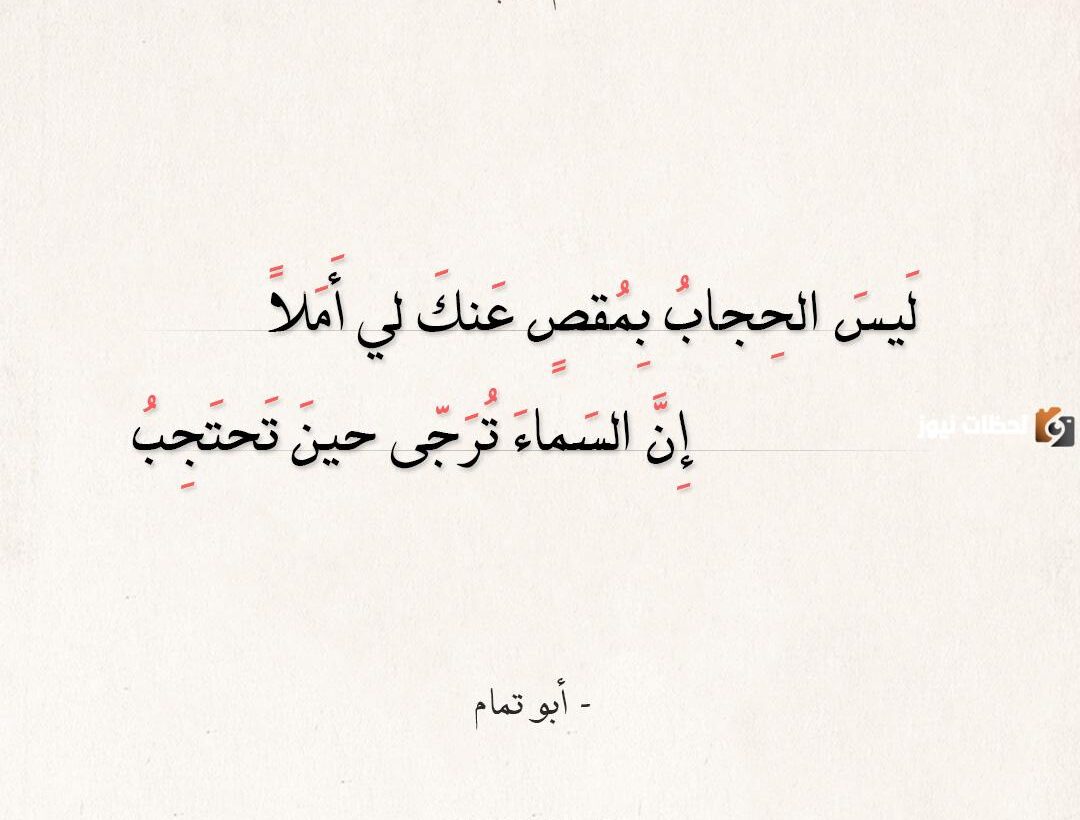 لَيسَ الحِجابُ بِمُقصٍ عَنكَ لي أَمَلاً
إِنَّ السَماءَ تُرَجّى حينَ تَحتَجِبُ
لحظات نيوز
- أبو تمام